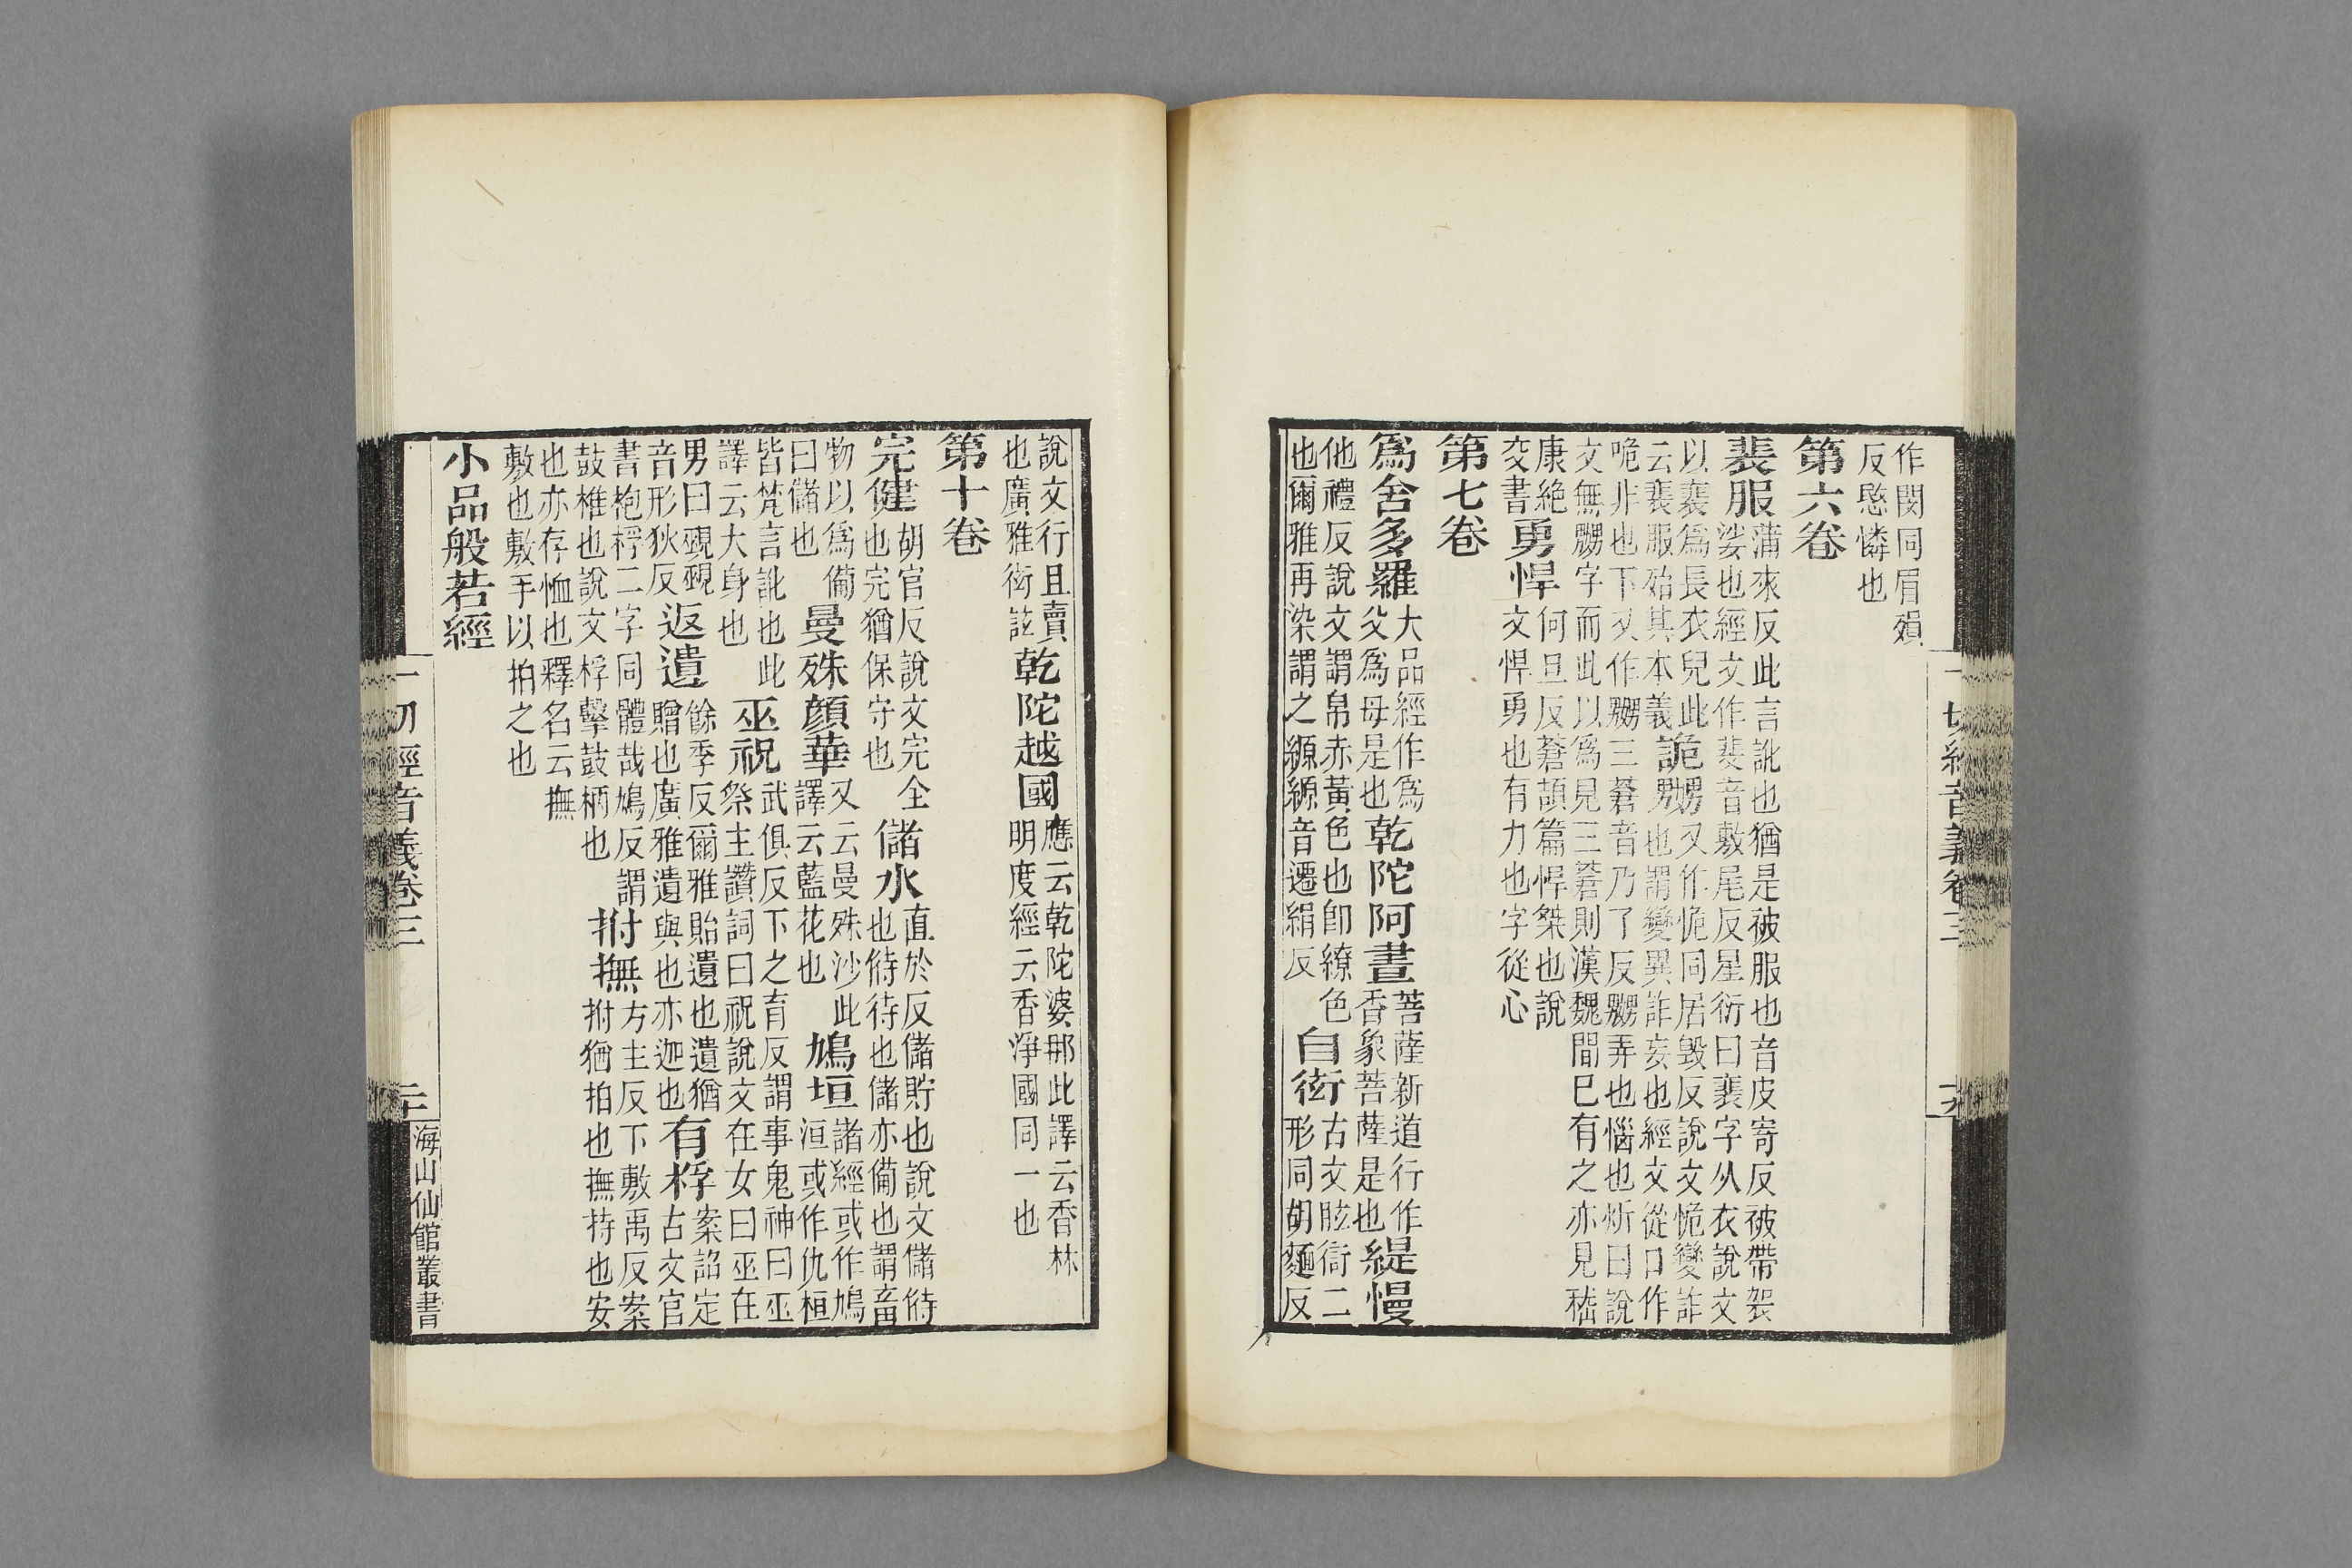 作閔同眉殞
反愍憐也
第六卷
裴服蒲來反此言訛也猶是被服也音皮寄反被帶袈
裟也經文作斐音敷尾反星衍曰裴字从衣說文
以裴爲長衣皃此詭嬲又作恑同居毀反說文恑變詐
云裴服殆其本義 也謂變異詐妄也經文從口作
咣非也下又作嬲三蒼音乃了反嬲弄也惱也炘曰說
文無嬲字而此以爲見三蒼則漢魏間已有之亦見嵇
康絕
交書勇悍何旦反蒼頡篇悍桀也說
文悍勇也有力也字從心
第七卷
爲舍多羅大品經作爲
父爲母是也乾陀阿晝菩薩新道行作
香象菩薩是也緹慢
他禮反說文謂帛赤黃色也卽繚色
也爾雅再染謂之縓縓音遷絹反自衒古文眩衙二
形同胡麵反
一切經音義卷三
說文行且賣
也廣雅衒詃乾陀越國應云乾陀婆那此譯云香林
明度經云香淨國同一也
第十卷
完健胡官反說文完全
也完猶保守也儲水直於反儲貯也說文儲偫
也偫待也儲亦備也謂畜
物以爲備
曰儲也曼殊顏華又云曼殊沙此
譯云藍花也鳩垣諸經或作鳩
洹或作仇桓
皆梵言訛也此
譯云大身也巫祝武俱反下之育反謂事鬼神曰巫
祭主讚詞曰祝說文在女曰巫在
男曰覡覡
音形狄反返遺餘季反爾雅貽遺也遺猶
贈也廣雅遺與也亦迦也有桴案詔定
古文官
書枹桴二字同體哉鳩反謂
鼓椎也說文桴擊鼓柄也拊撫方主反下敷禹反案
拊猶拍也撫持也安
也亦存恤也釋名云撫
敷也敷手以拍之也
小品般若經
一切經音義卷三 二十 海山仙館叢書